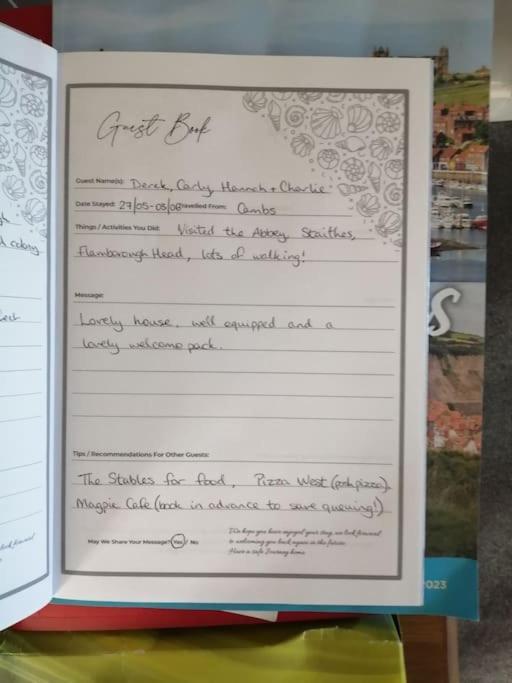 Guest Book
Guest Name(s): Derek, Carly Hannah + Charlie
Date Stayed: 27/05-03/06 Travelled From: Cambs
Things / Activities You Did: Visited the Abbey, Staithes,
Flamborough Head, lots of walking!
Message:
Lovely house, well equipped and a
lovely welcome pack.
Tips / Recommendations For Other Guests:
The Stables for food, Pizza West (posh pizza).
Magpie Cafe (book in advance to save queuing!)
May We Share Your Message? Yes / No
We hope you have enjoyed your stay, we look forward
to welcoming you back again in the future.
Have a safe Journey home
S
2023